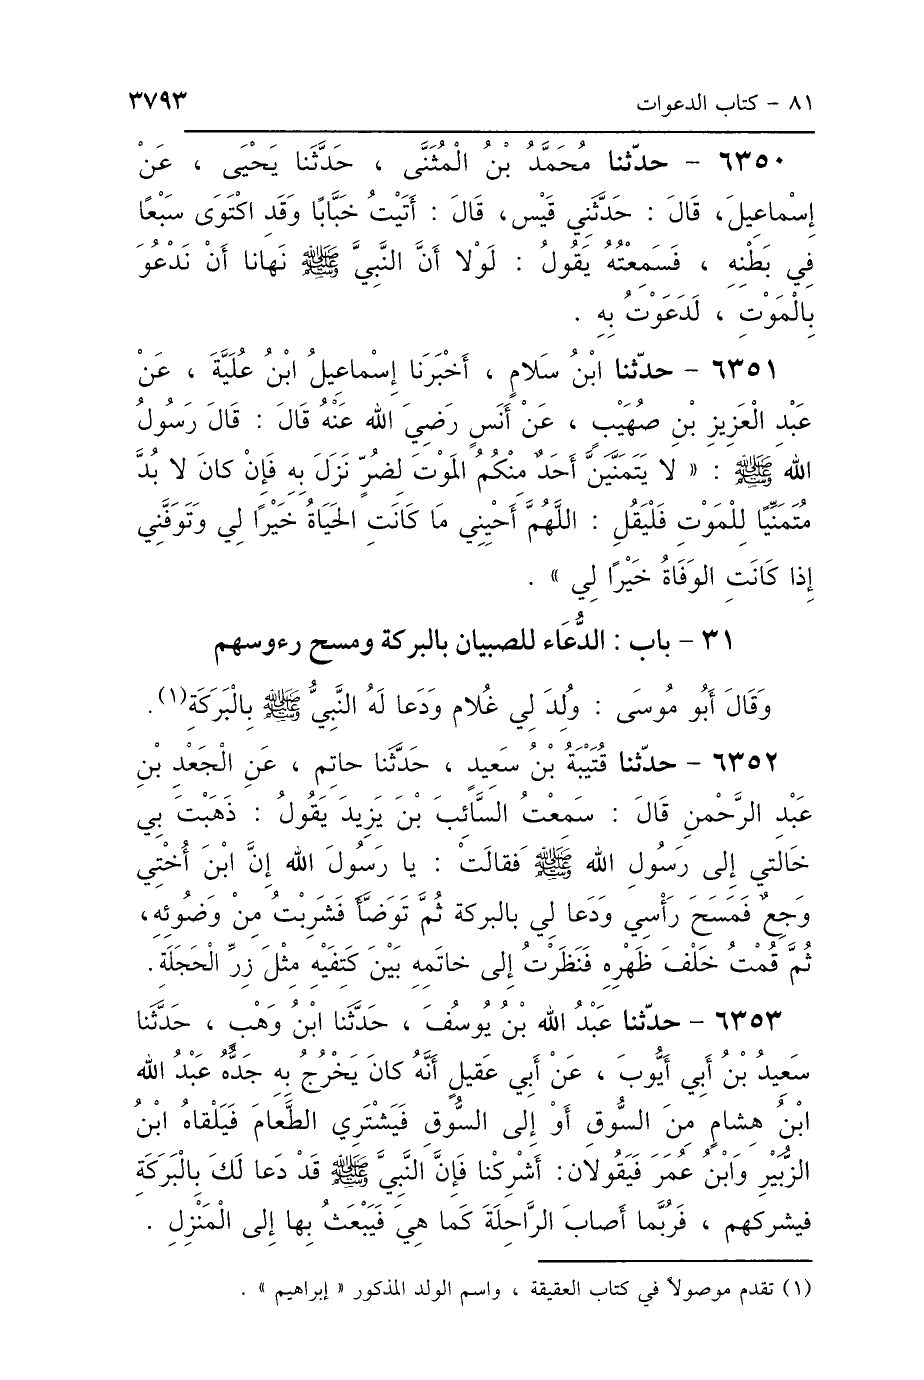 ٨١ - كتاب الدعوات ٣٧٩٣
٦٣٥٠ - حدّثنا مُحَمَّدُ بْنُ الْمُثَنَّى ، حَدَّثَنا يَحْيَى ، عَنْ
إسْماعِيلَ، قَالَ : حَدَّثَنِي قَيْس، قَالَ : أَتَيْتُ خَبَّابًا وَقَدِ اكْتَوَى سَبْعًا
فِي بَطْنِهِ ، فَسَمِعْتُهُ يَقُولُ : لَوْلا أنَّ النَّبِيَّ ﷺ نَهانا أنْ نَدْعُوَ
بِالْمَوْتِ ، لَدَعَوْتُ بِهِ .
٦٣٥١ - حدّثنا ابْنُ سَلَامٍ ، أَخْبَرَنَا إسْماعِيلُ ابْنُ عُلَيَّةَ ، عَنْ
عَبْدِ الْعَزِيزِ بْنِ صهَيْبٍ ، عَنْ أَنَسٍ رَضِيَ الله عَنْهُ قَالَ : قَالَ رَسُولُ
الله ﷺ : « لا يَتَمَنَّيَنَّ أَحَدٌ مِنْكُمُ المَوْتَ لِضُرّ نَزَلَ بِهِ فَإِنْ كانَ لا بُدَّ
مُتَمَنِّيًا لِلْمَوْتِ فَلْيَقُلِ : اللَّهُمَّ أَحْيِنِي مَا كَانَتِ الحَيَاةُ خَيْرًا لِي وَتَوَفَّنِي
إذا كَانَتِ الوَفَاةُ خَيْرًا لِي » .
٣١ - باب : الدُّعَاء للصبيان بالبركة ومسح رءوسهم
وَقَالَ أَبُو مُوسَى : وُلِدَ لِي غُلام وَدَعا لَهُ النَّبِيُّ ﷺ بِالْبَرَكَةِ(١).
٦٣٥٢ - حدّثنا قُتَيْبَةُ بْنُ سَعِيدٍ ، حَدَّثَنَا حاتِم ، عَنِ الْجَعْدِ بْنِ
عَبْدِ الرَّحْمنِ قَالَ : سَمِعْتُ السَّائِبَ بْنَ يَزِيدَ يَقُولُ : ذَهَبْتَ بِي
خَالَتِي إلى رَسُولِ الله ﷺ فَقالَتْ : يا رَسُولَ الله إنَّ ابْنَ أُخْتِي
وَجِعٌ فَمَسَحَ رَأْسِي وَدَعا لِي بالبركة ثُمَّ تَوَضَّأَ فَشَرِبْتُ مِنْ وَضُوئِهِ،
ثُمَّ قُمْتُ خَلْفَ ظَهْرِهِ فَنَظَرْتُ إلى خاتَمِهِ بَيْنَ كَتِفَيْهِ مِثْلَ زِرِّ الْحَجَلَةِ.
٦٣٥٣ - حدّثنا عَبْدُ الله بْنُ يُوسُفَ ، حَدَّثَنا ابْنُ وَهْبٍ ، حَدَّثَنا
سَعِيدُ بْنُ أَبِي أَيُّوبَ ، عَنْ أَبِي عَقِيلٍ أَنَّهُ كانَ يَخْرُجُ بِهِ جَدُّهُ عَبْدُ الله
ابْنُ هِشامٍ مِنَ السُّوقِ أَوْ إلى السُّوقِ فَيَشْتَرِي الطَّعامَ فَيَلْقاهُ ابْنُ
الزُّبَيْرِ وَابْنُ عُمَرَ فَيَقُولان: أَشْرِكْنا فَإِنَّ النَّبِيَّ ﷺ قَدْ دَعا لَكَ بِالْبَرَكَةِ
فيشركهم ، فَرُبَّما أصابَ الرَّاحِلَةَ كَما هِيَ فَيَبْعَثُ بِها إلى الْمَنْزِلِ .
(١) تقدم موصولاً في كتاب العقيقة ، واسم الولد المذكور « إبراهيم » .